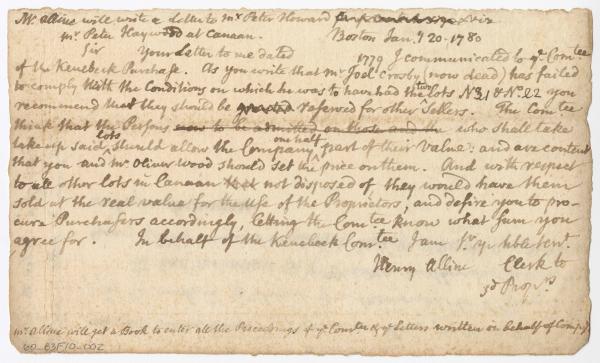 Mr. Alline will write a Letter to Mr Peter Howard viz
Mr. Peter Haywood at Canaan. Boston Jan.y 20-1780
Sir Your Letter to me dated 1779 I communicated to ye Comtee
of the Kenebeck Purchase. As you write that Mr Joel Crosby (now dead) has failed
to comply with the Conditions on which he was to have had the two lots N31 & No.22 you
recommend that they should be granted reserved for other Setlers. The Comtee
think that the Persons now to be admitted on those and the who shall take
take up said Lots should allow the Company one half part of their value: and are content
that you and Mr Oliver Wood should set the price on them. And with respect
to all other lots in Canaan that not disposed of, they would have them
sold at the real value for the Use of the Proprietors, and desire you to pro-
cure Purchasers accordingly, letting the Comtee know what sum you
agree for. In behalf of the Kenebeck Comtee I am Sr. yr Hble Servt.
Henry Alline Clerk to
sd Proprs
Mr. Alline will get a Book to enter all the Proceedings of ye Comtee & ye Letters written on behalf of Compy
60-83F10-002